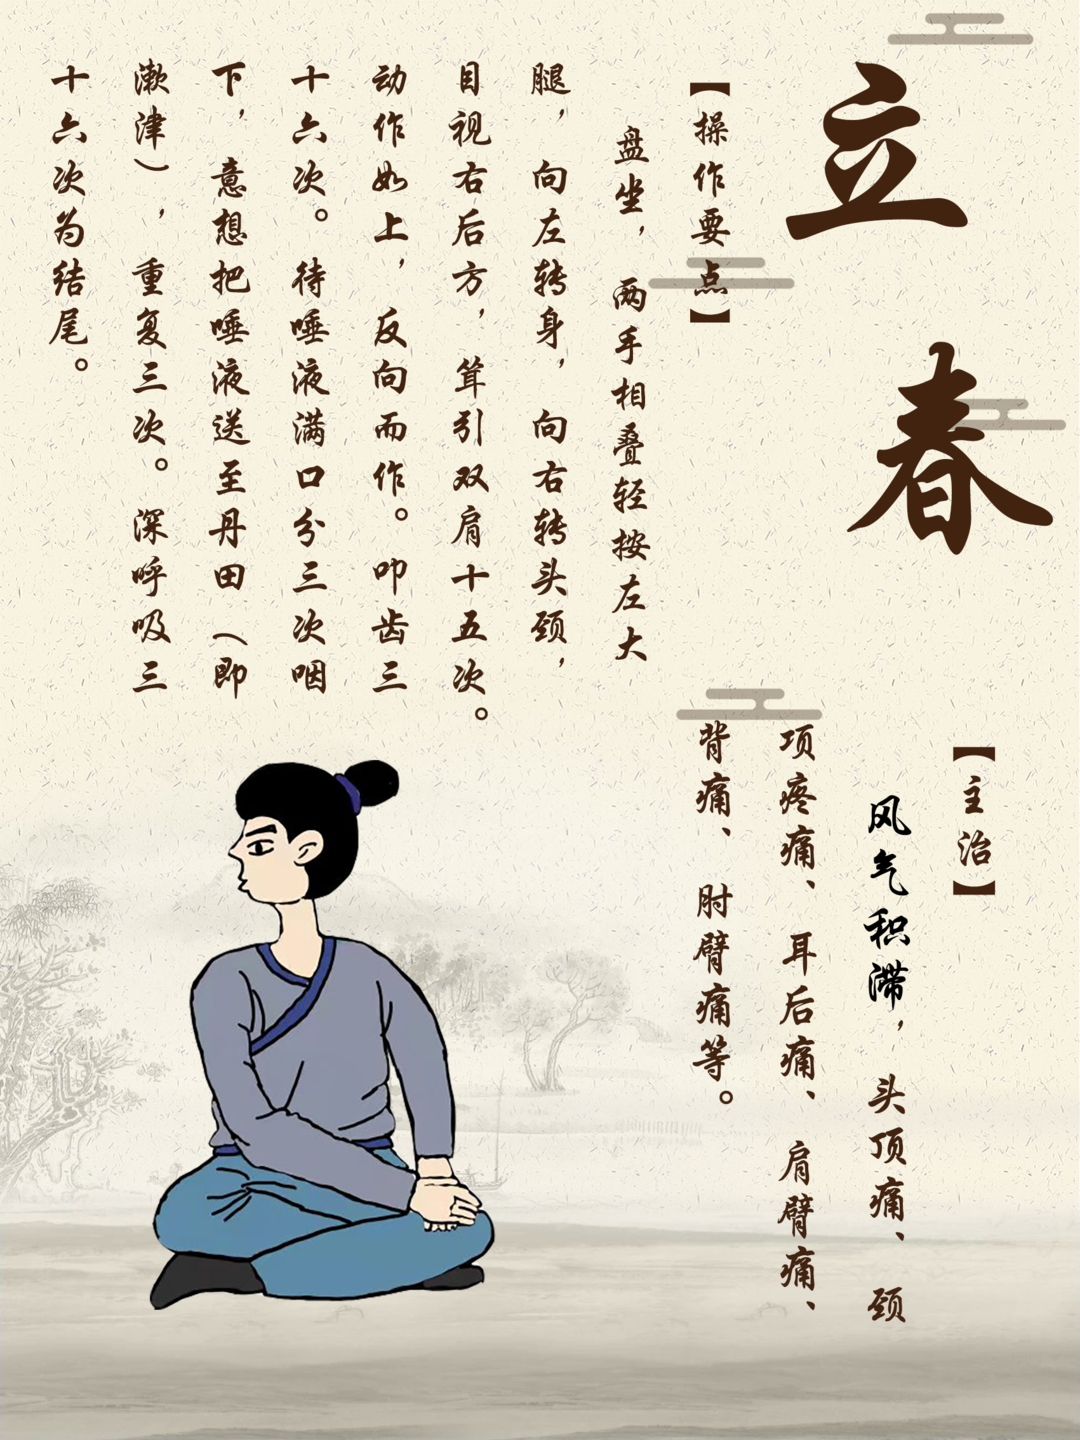 立春
【操作要点】
盘坐，两手相叠轻按左大
腿，向左转身，向右转头颈，
目视右后方，耸引双肩十五次。
动作如上，反向而作。叩齿三
十六次。待唾液满口分三次咽
下，意想把唾液送至丹田（即
漱津），重复三次。深呼吸三
十六次为结尾。
【主治】
风气积滞，头顶痛、颈
项疼痛、耳后痛、肩臂痛、
背痛、肘臂痛等。